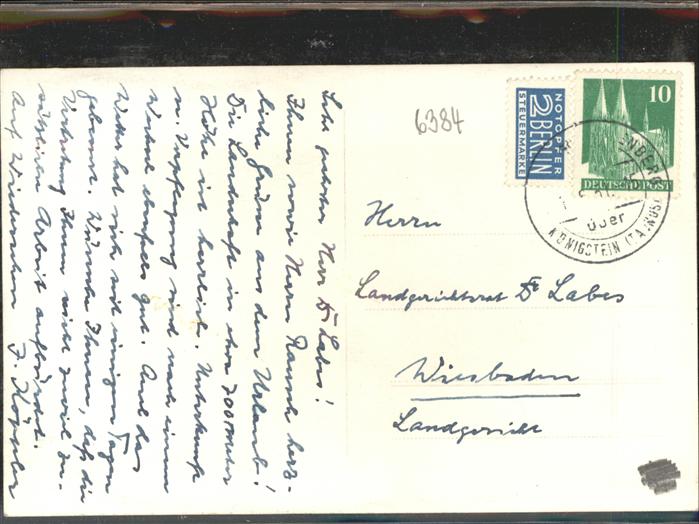 Sehr geehrter Herr Dr. Labes!
Ihnen sowie Herrn Rausch herz-
liche Grüsse aus dem Urlaub!
Die Landschaft in etwa 700 meter
Höhe ist herrlich. Unterkunft
u. Verpflegung sind nach einem
Wechsel ebenfalls gut. Auch das
Wetter hat sich seit einigen Tagen
gebessert. Wünsche Ihnen, daß die
Vertretung Ihnen nicht zuviel zu-
sätzliche Arbeit aufbürdet.
Auf Wiedersehen
6384
NOTOPFER
2 BERLIN
STEUERMARKE
10
DEUTSCHE POST
über
KÖNIGSTEIN (TAUNUS)
Herrn
Landgerichtsrat Dr. Labes
Wiesbaden
Landgericht